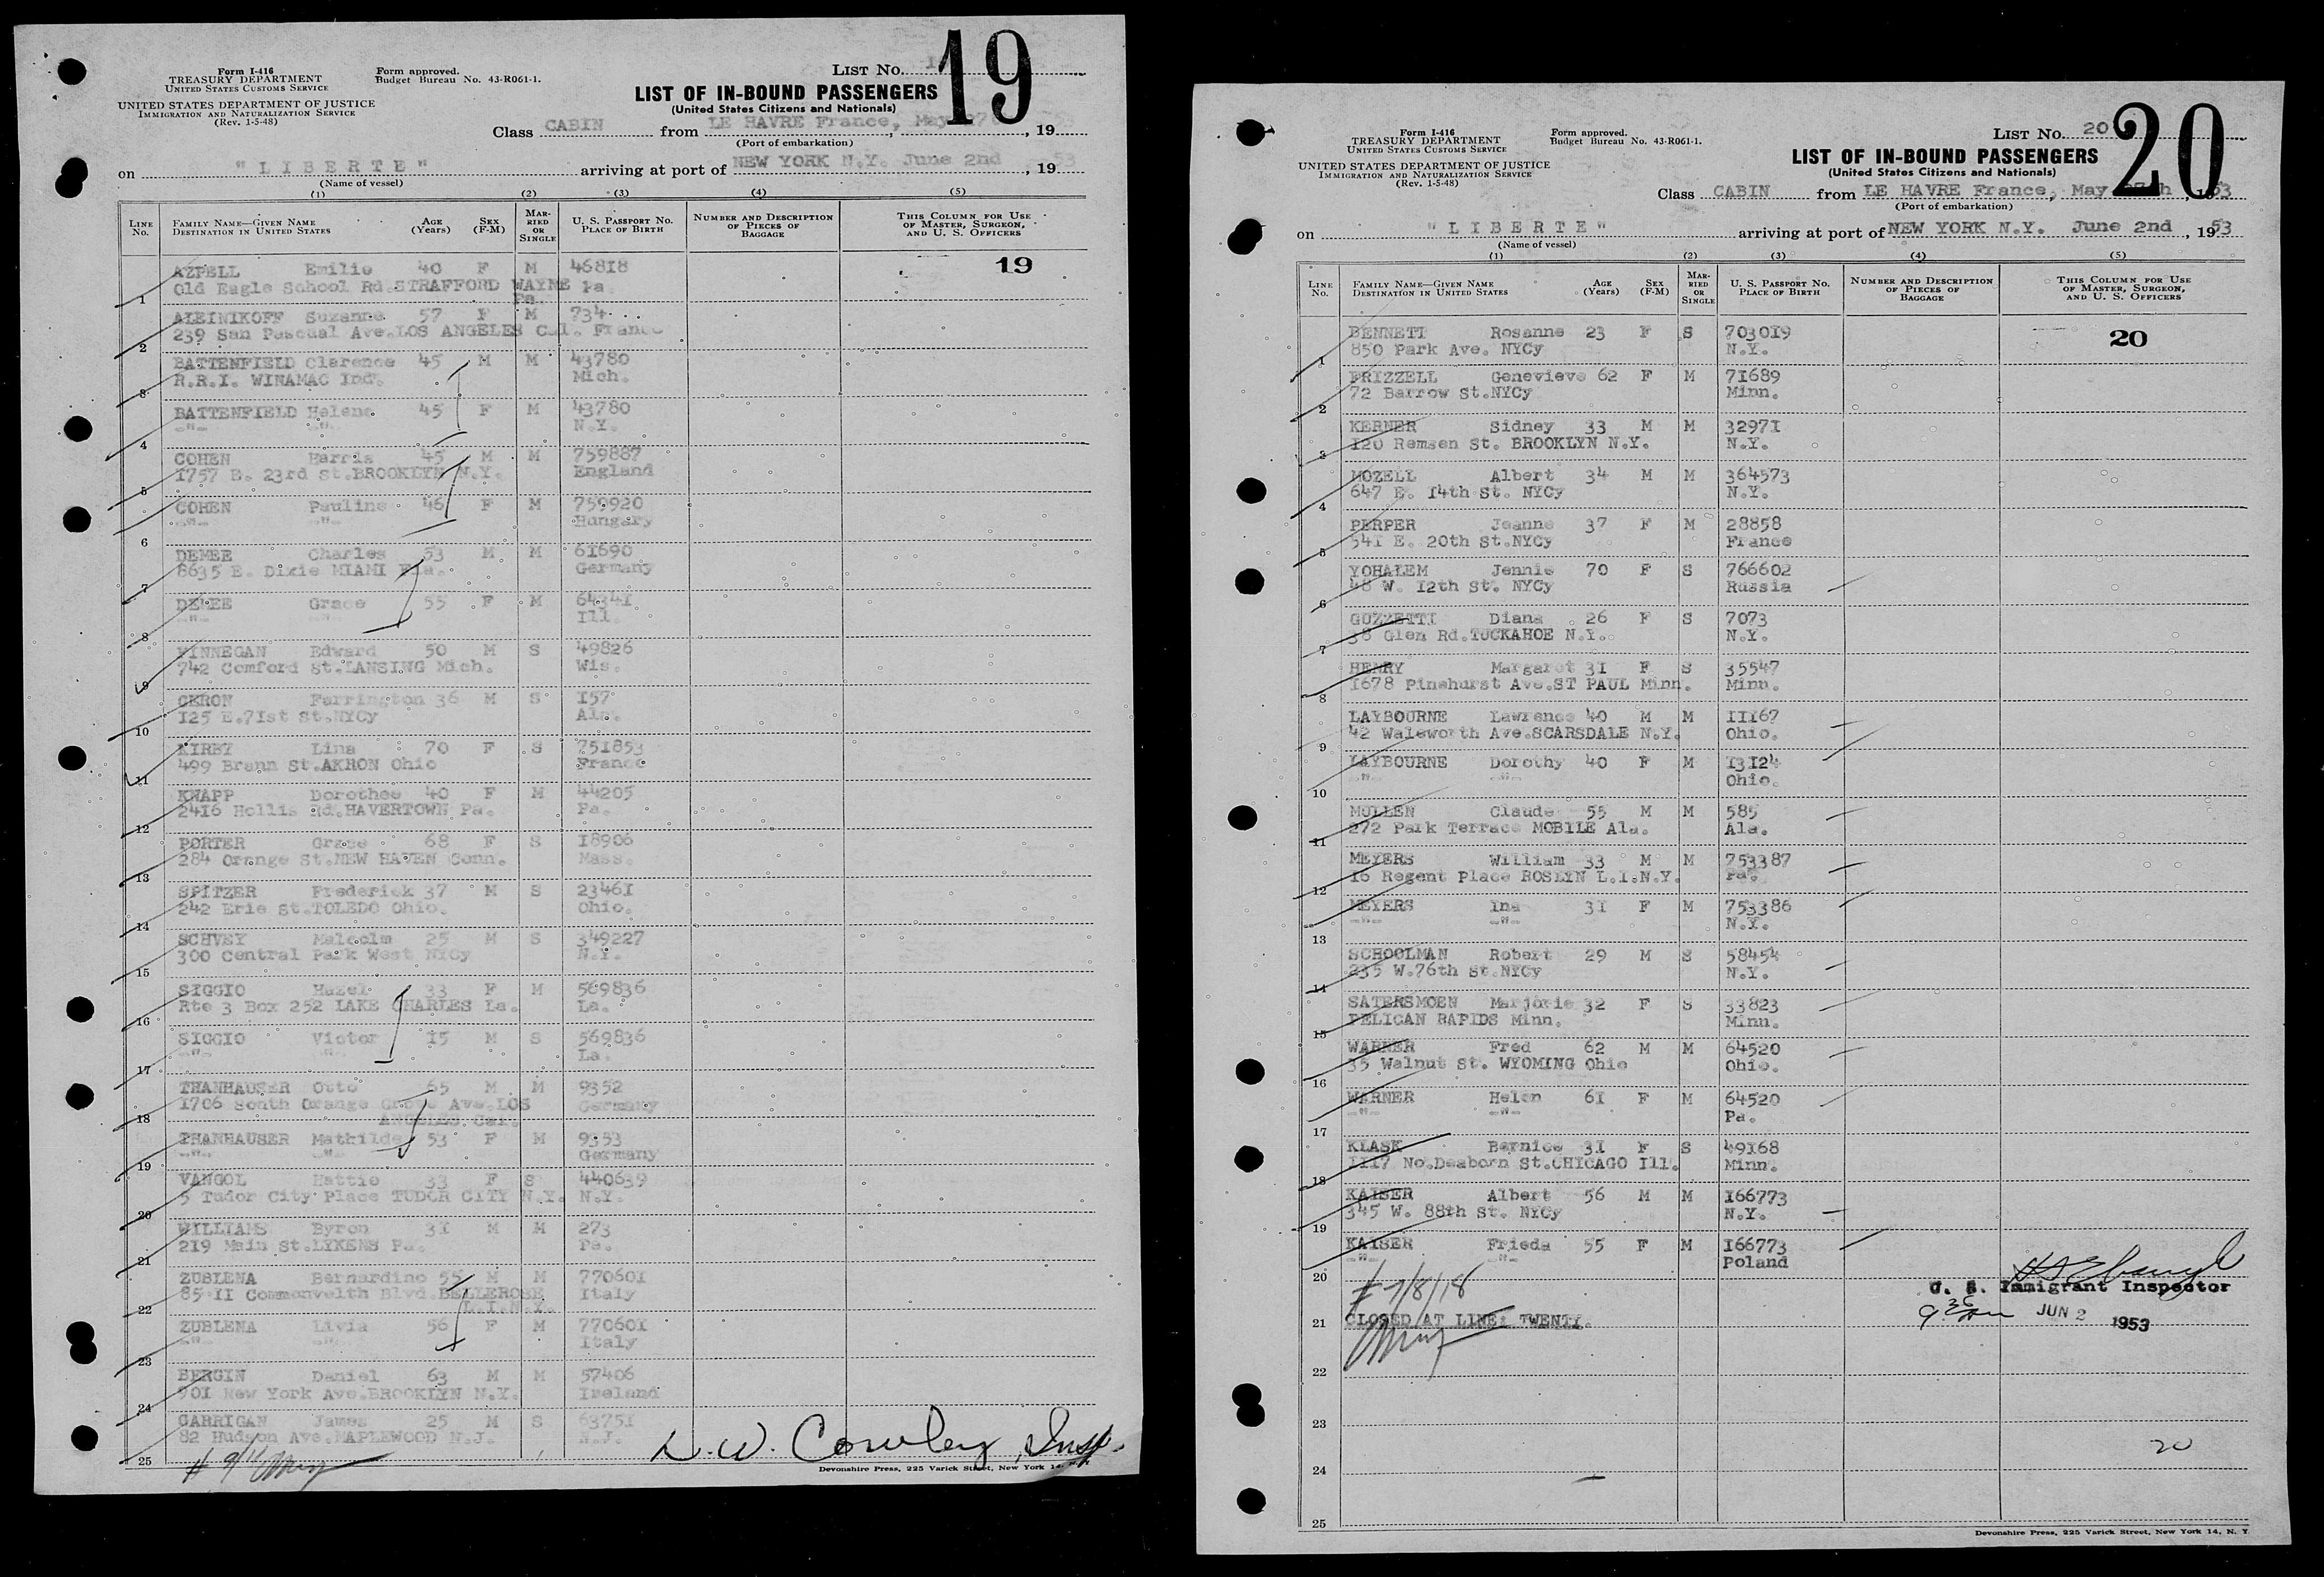 Form I-416
TREASURY DEPARTMENT
UNITED STATES CUSTOMS SERVICE
UNITED STATES DEPARTMENT OF JUSTICE
IMMIGRATION AND NATURALIZATION SERVICE
(Rev. 1-5-48)
Form approved.
Budget Bureau No. 43-R061-1.
LIST NO.
19
LIST OF IN-BOUND PASSENGERS
(United States Citizens and Nationals)
Class CABIN from LE HAVRE France, May 27, 19 53
(Port of embarkation)
on "LIBERTE" arriving at port of NEW YORK N.Y. June 2nd, 19 53
(Name of vessel)
(1) (2) (3) (4) (5)
LINE NO. FAMILY NAME—GIVEN NAME DESTINATION IN UNITED STATES AGE (Years) SEX (F-M) MARRIED OR SINGLE U. S. PASSPORT NO. PLACE OF BIRTH NUMBER AND DESCRIPTION OF PIECES OF BAGGAGE THIS COLUMN FOR USE OF MASTER, SURGEON, AND U. S. OFFICERS
19
AZPELL Emilie 40 F M 46818
1 Old Eagle School Rd.STRAFFORD WAYNE Pa. Pa.
ALEINIKOFF Suzanne 57 F M 734
2 239 San Pascual Ave.LOS ANGELES Cal. France
BATTENFIELD Clarence 45 M M 43780
3 R.R.I. WINAMAC Ind. Mich.
BATTENFIELD Helene 45 F M 43780
4 -"- -"- N.Y.
COHEN Harris 45 M M 759887
5 1757 E. 23rd St.BROOKLYN N.Y. England
COHEN Pauline 46 F M 759920
6 -"- -"- Hungary
DEMEE Charles 53 M M 61690
7 8635 E. Dixie MIAMI Fla. Germany
DEMEE Grace 55 F M 64341
8 -"- -"- Ill.
FINNEGAN Edward 50 M S 49826
9 742 Comford St.LANSING Mich. Wis.
OKRON Farrington 36 M S 157
10 125 E.71st St.NYCy Ala.
KIRBY Lina 70 F S 751853
11 499 Brann St.AKRON Ohio France
KNAPP Dorothee 40 F M 44205
12 2416 Hollis Rd.HAVERTOWN Pa. Pa.
PORTER Grace 68 F S 18906
13 284 Orange St.NEW HAVEN Conn. Mass.
SPITZER Frederick 37 M S 23461
14 242 Erie St.TOLEDO Ohio. Ohio.
SCHVEY Malcolm 25 M S 349227
15 300 Central Park West NYCy N.Y.
SIGGIO Hazel 33 F M 569836
16 Rte 3 Box 252 LAKE CHARLES La. La.
SIGGIO Victor 15 M S 569836
17 -"- -"- La.
THANHAUSER Otto 65 M M 9352
18 1706 South Orange Grove Ave.LOS ANGELES.Cal. Germany
THANHAUSER Mathilde 53 F M 9353
19 -"- -"- Germany
VANGOL Hattie 33 F S 440639
20 5 Tudor City Place TUDOR CITY N.Y. N.Y.
WILLIAMS Byron 31 M M 273
21 219 Main St.LYKENS Pa. Pa.
ZUBLENA Bernardino 55 M M 770601
22 85-II Commonvelth Blvd.BELLEROSE L.I.N.Y. Italy
ZUBLENA Livia 56 F M 770601
23 -"- -"- Italy
BERGIN Daniel 63 M M 57406
24 901 New York Ave.BROOKLYN N.Y. Ireland
CARRIGAN James 25 M S 63751
25 82 Hudson Ave.MAPLEWOOD N.J. N.J.
# 9/11
D.W. Cowley, Insp.
Devonshire Press, 225 Varick Street, New York 14, N. Y.
Form I-416
TREASURY DEPARTMENT
UNITED STATES CUSTOMS SERVICE
UNITED STATES DEPARTMENT OF JUSTICE
IMMIGRATION AND NATURALIZATION SERVICE
(Rev. 1-5-48)
Form approved.
Budget Bureau No. 43-R061-1.
LIST NO. 20
20
LIST OF IN-BOUND PASSENGERS
(United States Citizens and Nationals)
Class CABIN from LE HAVRE France, May 27th, 1953
(Port of embarkation)
on "LIBERTE" arriving at port of NEW YORK N.Y. June 2nd, 1953
(Name of vessel)
(1) (2) (3) (4) (5)
LINE NO. FAMILY NAME—GIVEN NAME DESTINATION IN UNITED STATES AGE (Years) SEX (F-M) MARRIED OR SINGLE U. S. PASSPORT NO. PLACE OF BIRTH NUMBER AND DESCRIPTION OF PIECES OF BAGGAGE THIS COLUMN FOR USE OF MASTER, SURGEON, AND U. S. OFFICERS
20
BENNETT Rosanne 23 F S 703019
1 850 Park Ave. NYCy N.Y.
FRIZZELL Genevieve 62 F M 71689
2 72 Barrow St.NYCy Minn.
KERNER Sidney 33 M M 32971
3 120 Remsen St. BROOKLYN N.Y. N.Y.
MOZELL Albert 34 M M 364573
4 647 E. 14th St. NYCy N.Y.
PERPER Jeanne 37 F M 28858
5 541 E. 20th St.NYCy France
YOHALEM Jennie 70 F S 766602
6 48 W. 12th St. NYCy Russia
GUZZETTI Diana 26 F S 7073
7 38 Glen Rd.TUCKAHOE N.Y. N.Y.
HENRY Margaret 31 F S 35547
8 1678 Pinehurst Ave.ST PAUL Minn. Minn.
LAYBOURNE Lawrence 40 M M 11167
9 42 Walsworth Ave.SCARSDALE N.Y. Ohio.
LAYBOURNE Dorothy 40 F M 13124
10 -"- -"- Ohio.
MULLEN Claude 55 M M 585
11 272 Park Terrace MOBILE Ala. Ala.
MEYERS William 33 M M 753387
12 16 Regent Place ROSLYN L.I.N.Y. Pa.
MEYERS Ina 31 F M 753386
13 -"- -"- N.Y.
SCHOOLMAN Robert 29 M S 58454
14 235 W.76th St.NYCy N.Y.
SATERSMOEN Marjorie 32 F S 33823
15 PELICAN RAPIDS Minn. Minn.
WARNER Fred 62 M M 64520
16 35 Walnut St. WYOMING Ohio Ohio.
WARNER Helen 61 F M 64520
17 -"- -"- Pa.
KLASK Bernice 31 F S 49168
18 1117 No.Deaborn St.CHICAGO Ill. Minn.
KAISER Albert 56 M M 166773
19 345 W. 88th St. NYCy N.Y.
KAISER Frieda 55 F M 166773
20 -"- -"- Poland
# 7/8/18
U. S. Immigrant Inspector
JUN 2 1953
21 CLOSED AT LINE: TWENTY.
22
23
20
24
25
Devonshire Press, 225 Varick Street, New York 14, N. Y.